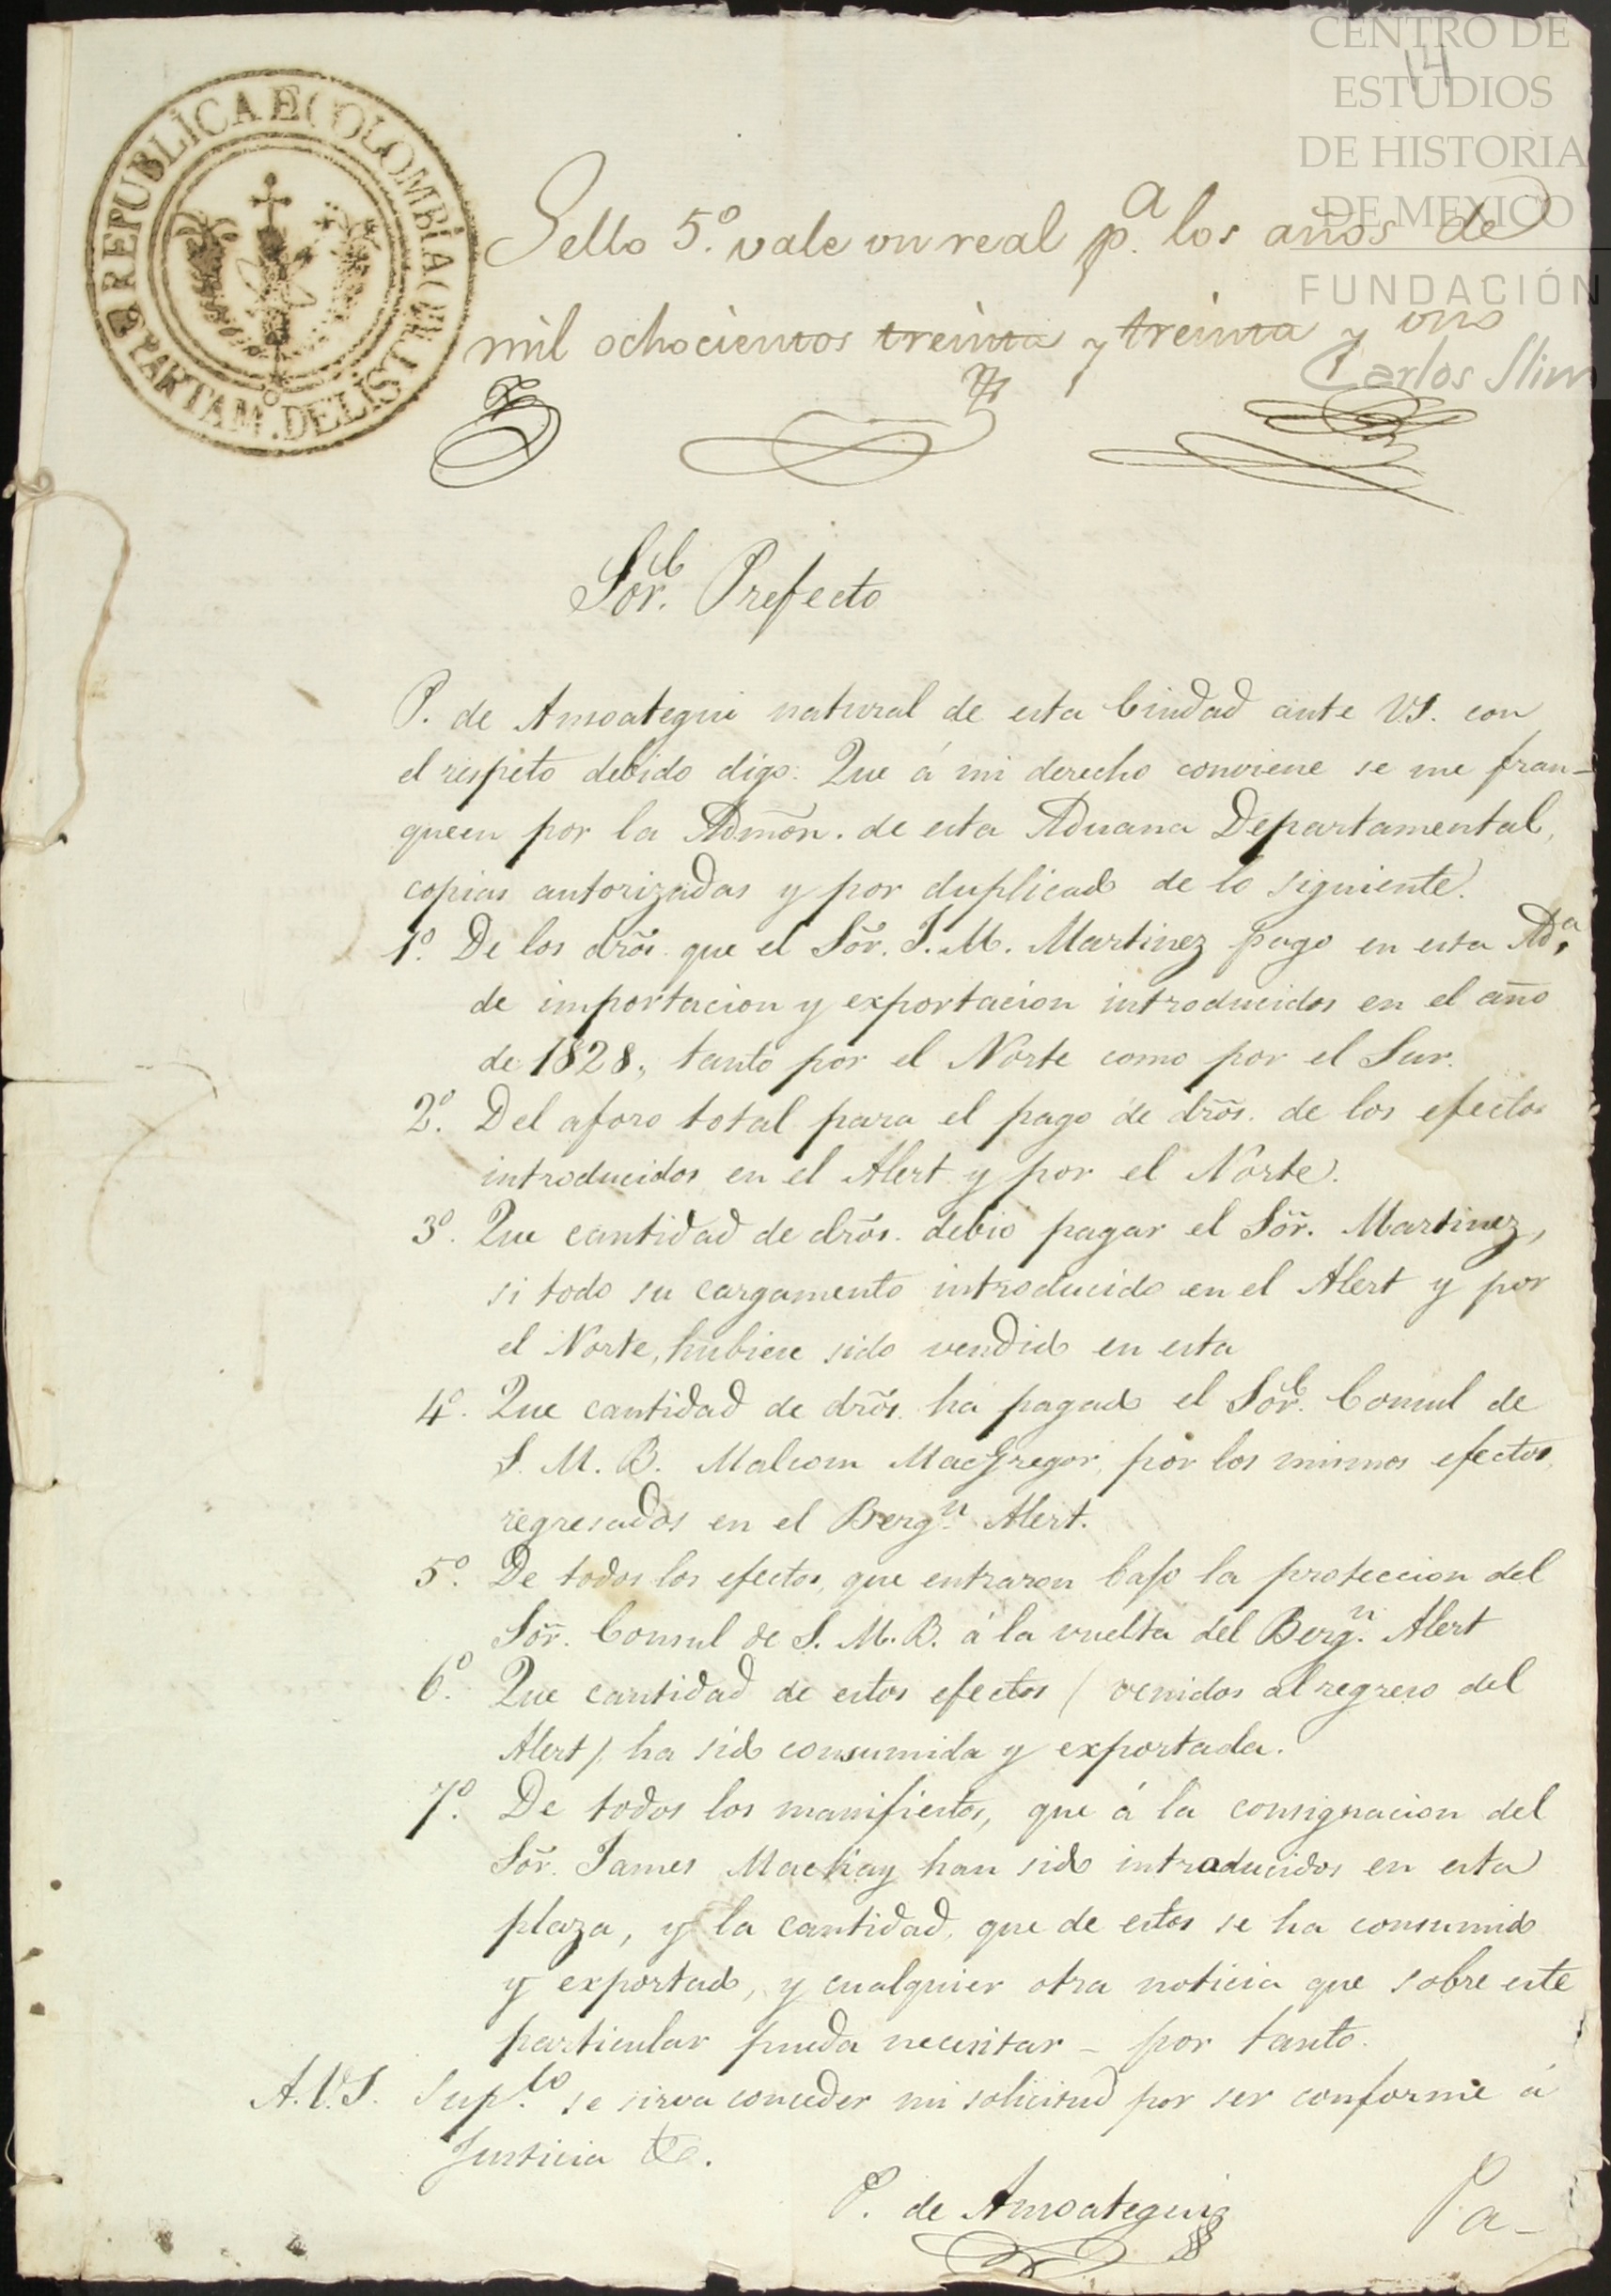 CENTRO DE
ESTUDIOS
DE HISTORIA
DE MEXICO
FUNDACIÓN
Carlos Slim
14
REPUBLICA E COLOMBIA
PARTAM. DEL IST
Sello 5.º vale un real p.ª los años de
mil ochocientos treinta y treinta y uno
Sor. Prefecto
P. de Amoategui natural de esta Ciudad ante VS. con
el respeto debido digo: Que á mi derecho conviene se me fran-
queen por la Admōn. de esta Aduana Departamental,
copias autorizadas y por duplicado de lo siguiente.
1.º De los drōs. que el Sōr. J. M. Martinez pago en esta Ad.ª
de importacion y exportacion introducidos en el año
de 1828, tanto por el Norte como por el Sur.
2.º Del aforo total para el pago de drōs. de los efectos
introducidos en el Alert y por el Norte.
3.º Que cantidad de drōs. debio pagar el Sōr. Martinez,
si todo su cargamento introducido en el Alert y por
el Norte, hubiese sido vendido en esta
4.º Que cantidad de drōs. ha pagado el Sōr. Consul de
S. M. B. Malcom MacGregor, por los mismos efectos,
regresados en el Berg.n Alert.
5.º De todos los efectos, que entraron bajo la proteccion del
Sōr. Consul de S. M. B. á la vuelta del Berg.n Alert
6.º Que cantidad de estos efectos (venidos al regreso del
Alert) ha sido consumida y exportada.
7.º De todos los manifiestos, que á la consignacion del
Sōr. James Mackay han sido introducidos en esta
plaza, y la cantidad, que de estos se ha consumido
y exportado, y cualquier otra noticia que sobre este
particular pueda necesitar – por tanto.
A. V. S. Sup.co se sirva conceder mi solicitud por ser conforme á
Justicia &.
P. de Amoategui
Pa-